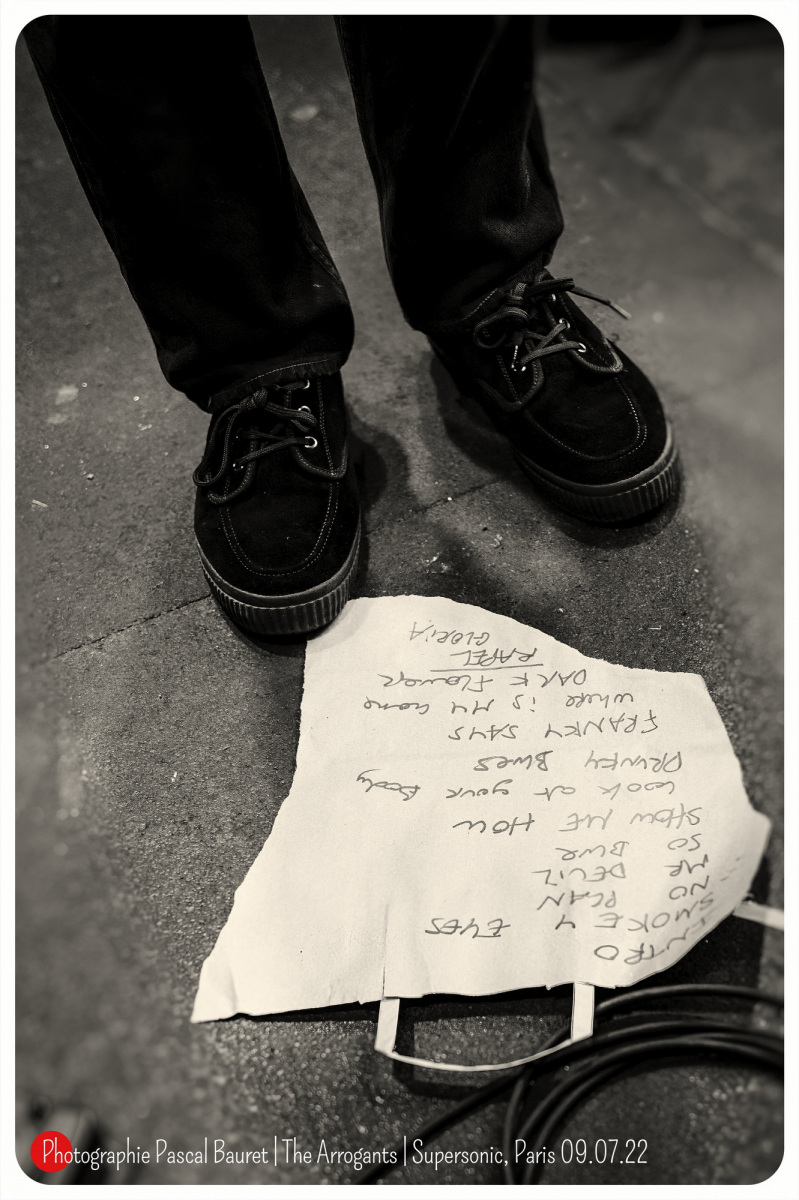 INTRO
SMOKEY EYES
NO PLAN
MR DEVIL
SO BLUE
SHOW ME HOW
Look at your Body
DRUNKY BLUES
FRANKY SAYS
Where is MY
DARK Flower
RAPEL
GLORiA
Photographie Pascal Bauret | The Arrogants | Supersonic, Paris 09.07.22